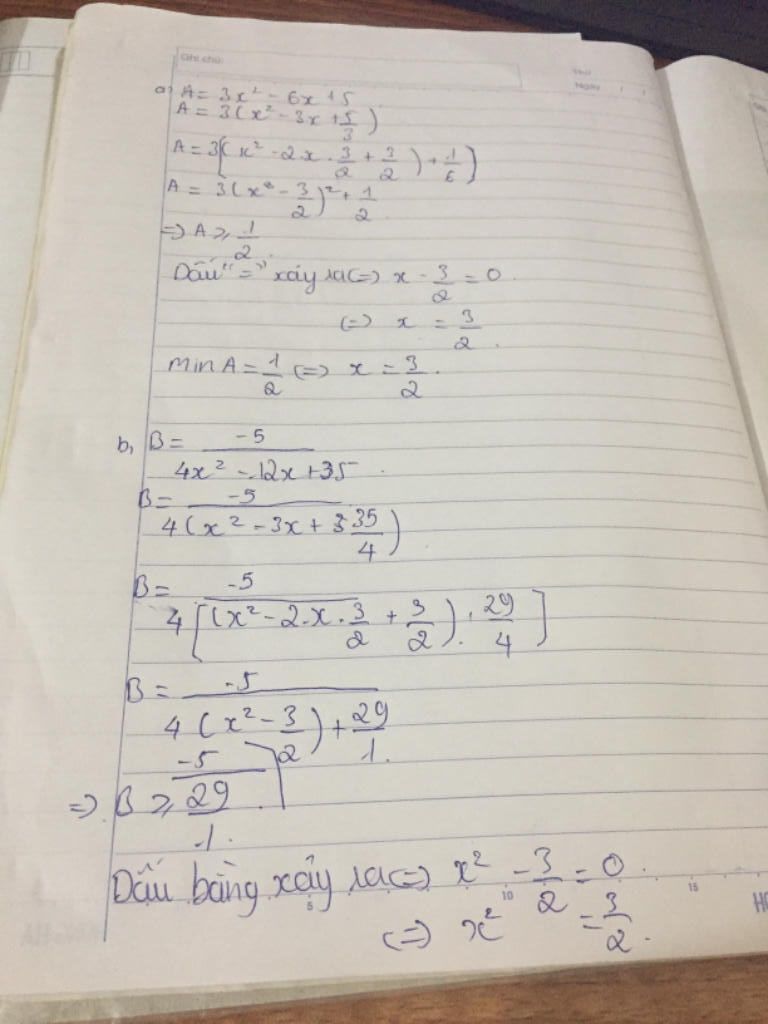 Ghi chú:
Thứ
Ngày / /
a) A = 3x² - 6x + 5
A = 3(x² - 3x + 5/3)
A = 3[(x² - 2x . 3/2 + 3/2) + 1/6]
A = 3(x - 3/2)² + 1/2
=> A ≥ 1/2.
Dấu "=" xảy ra <=> x - 3/2 = 0.
<=> x = 3/2.
min A = 1/2 <=> x = 3/2.
b, B = -5/(4x² - 12x + 35).
B = -5/(4(x² - 3x + 35/4))
B = -5/(4[(x² - 2.x.3/2 + 3/2) . 29/4])
B = -5/(4(x² - 3/2) + 29/1.)
=> B ≥ -5/(29/1.)
Dấu bằng xảy ra <=> x² - 3/2 = 0.
5 10 15
<=> x² = 3/2.